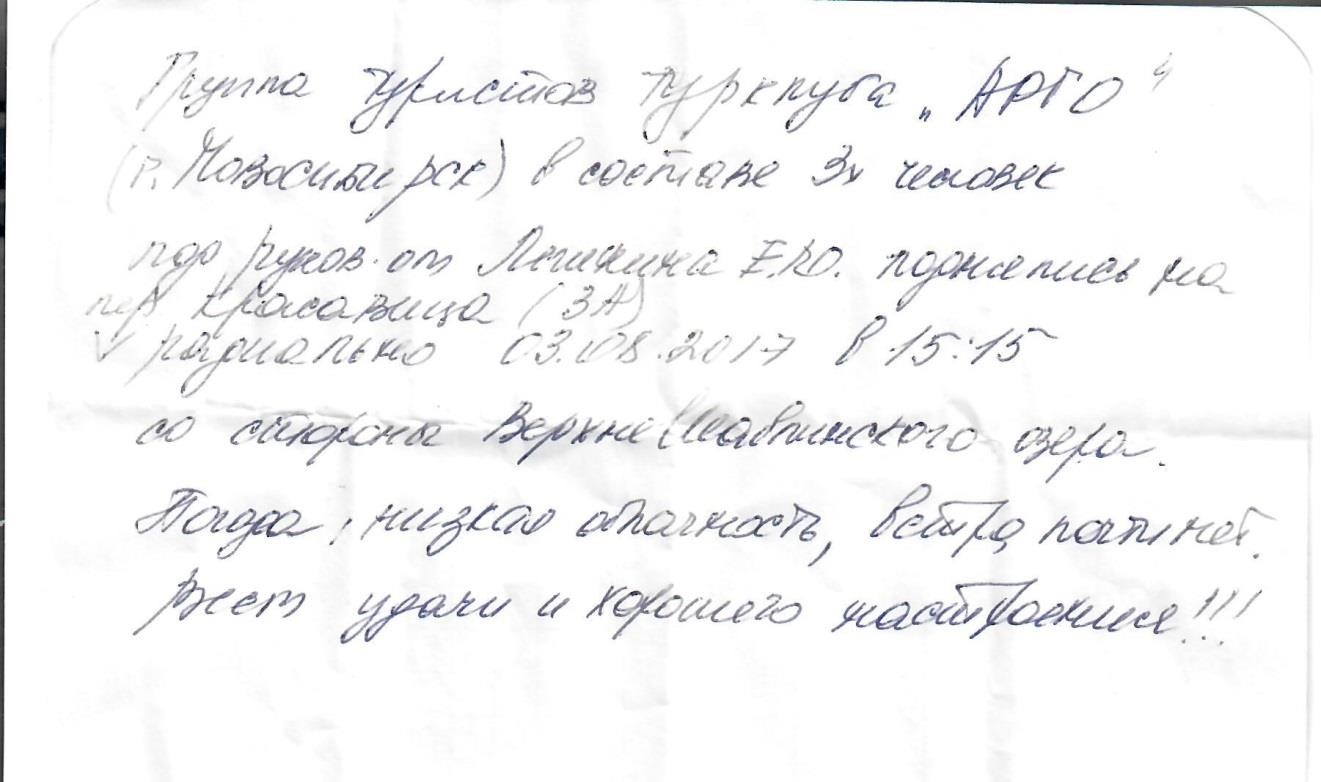 Группа туристов турклуба „АРГО“
(г. Новосибирск) в составе 3х человек
под руков. от Е.Ю. поднялись на
пер Красавица (3А)
V радиально 03.08.2017 в 15:15
со стороны Верхне Шавлинского озера.
Погода, низкая облачность, ветра почти нет.
Всем удачи и хорошего настроения!!!